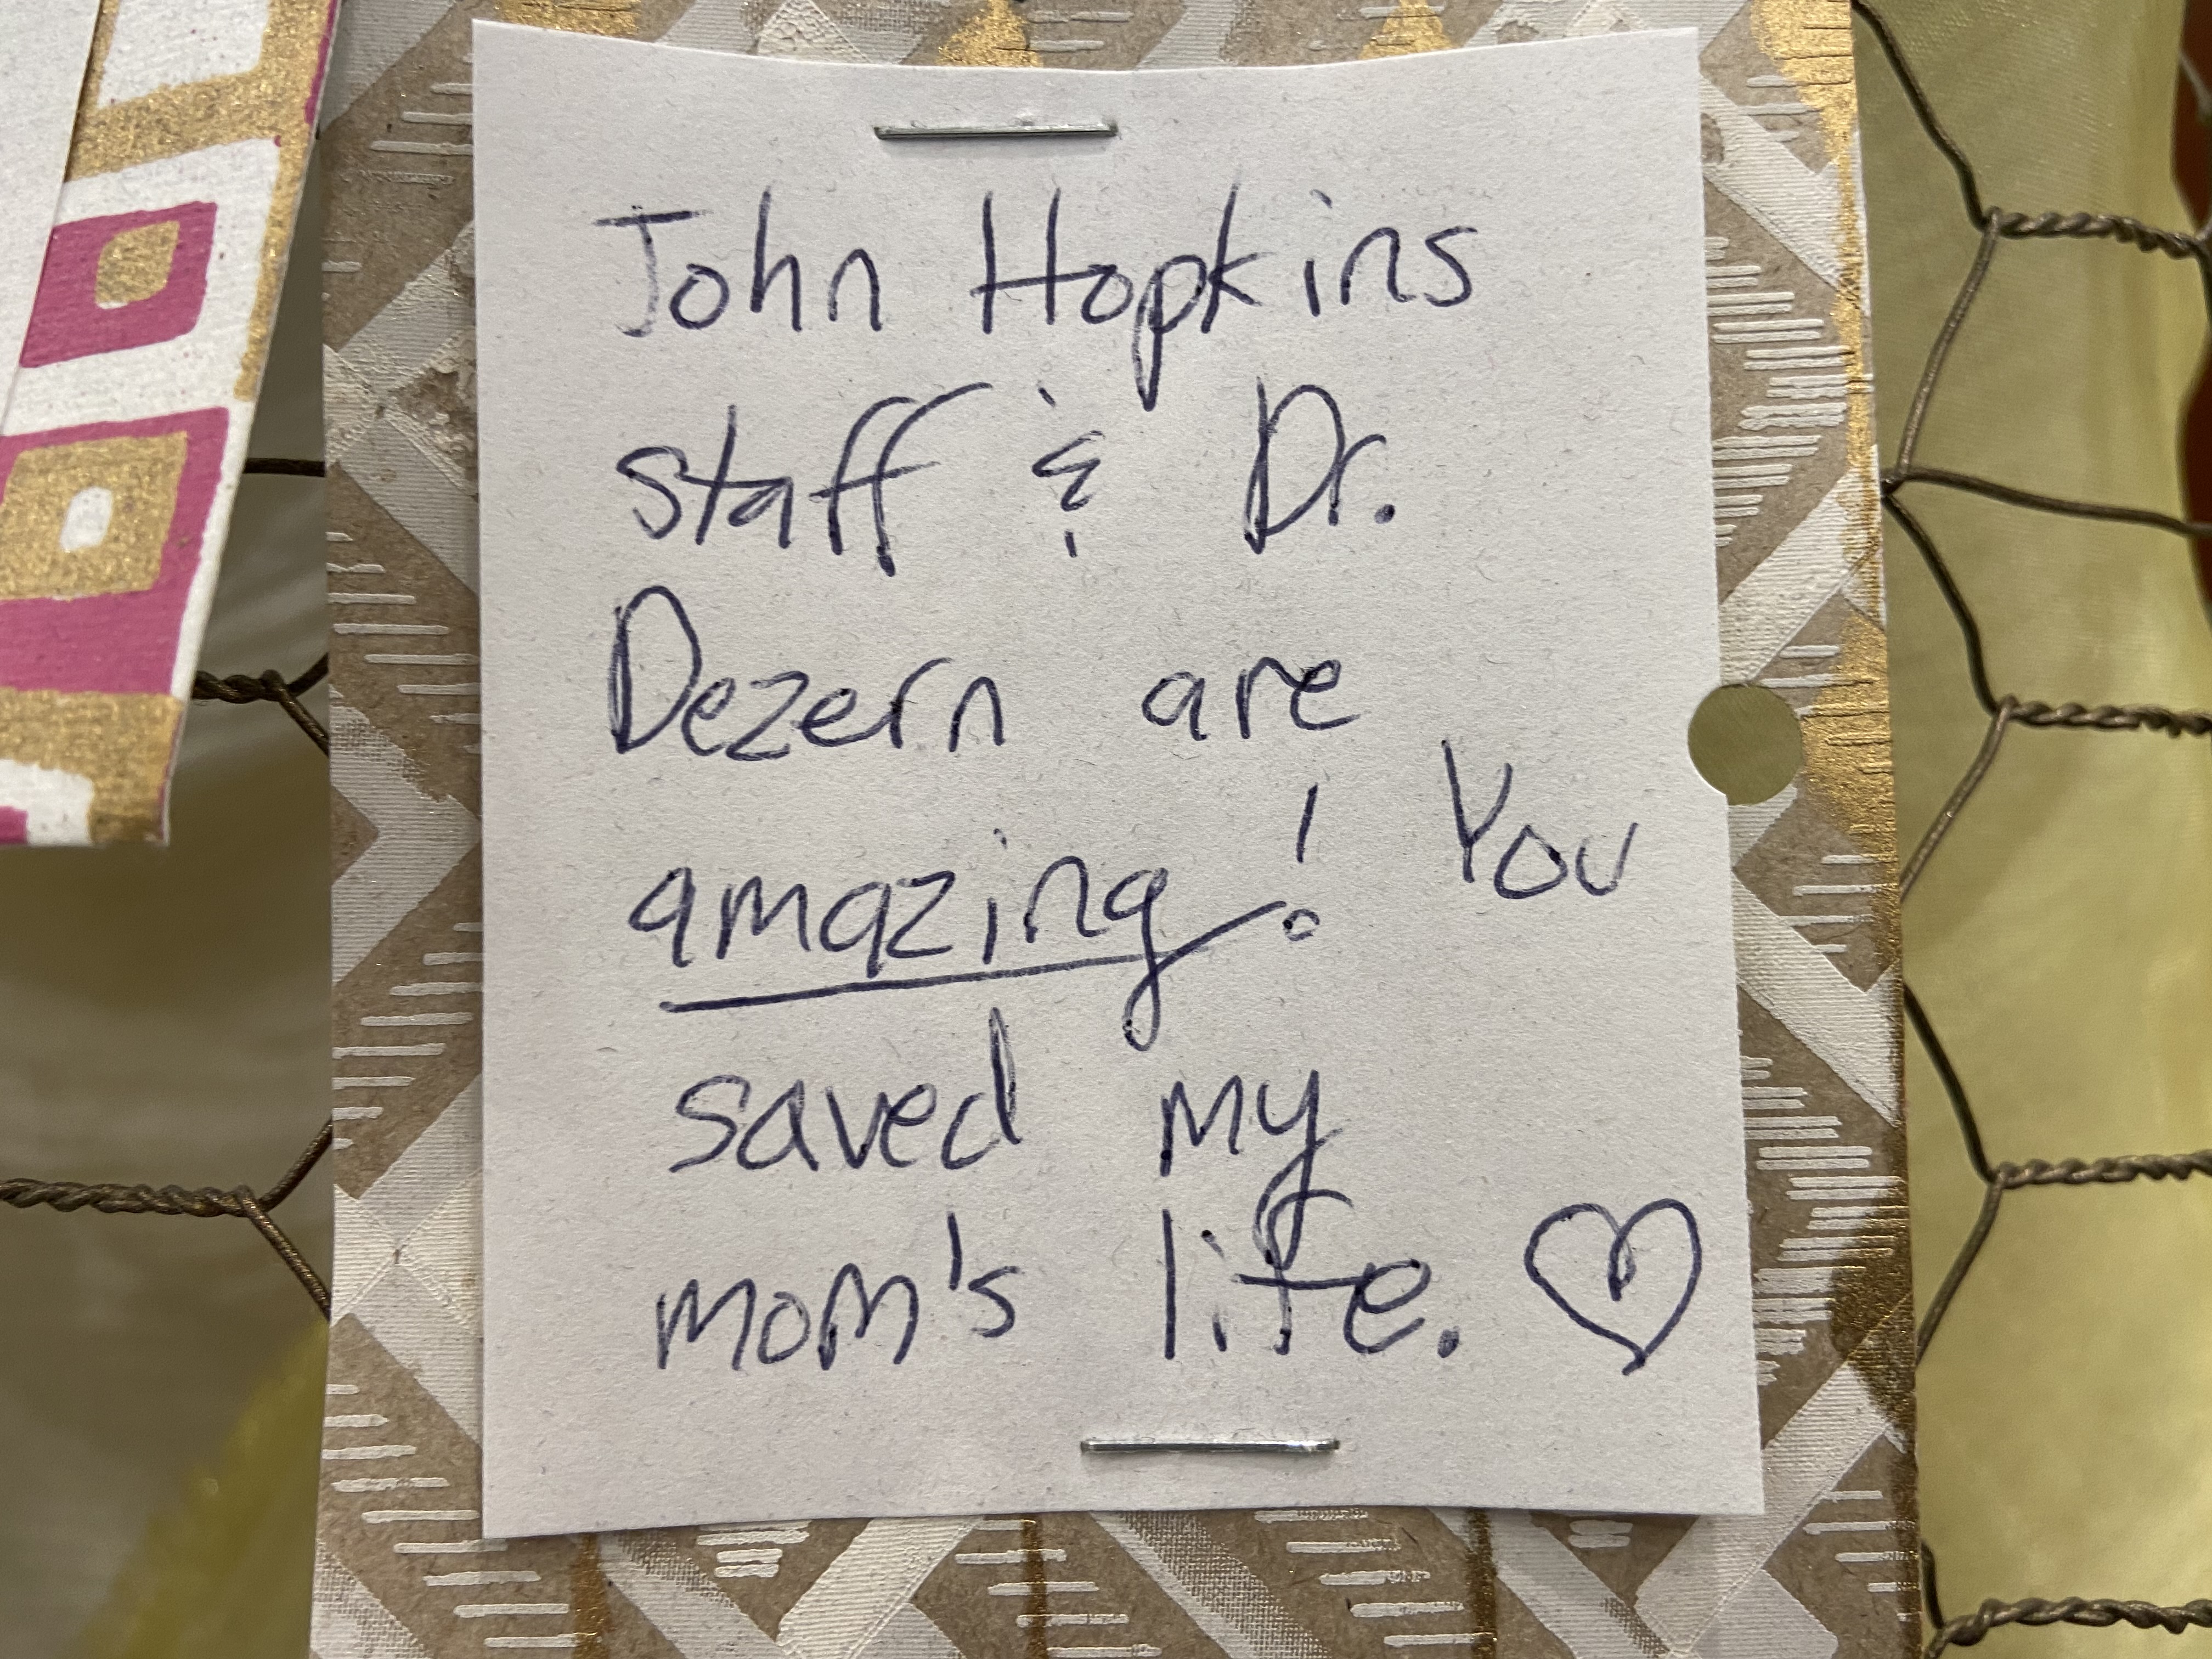 John Hopkins
staff & Dr.
Dezern are
amazing! You
saved my
mom's life. ♡